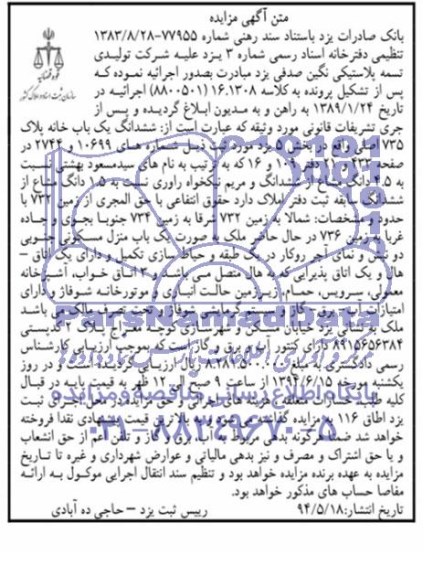 متن آگهی مزایده
بانک صادرات یزد باستناد سند رهنی شماره ۷۷۹۵۵-۱۳۸۳/۸/۲۸
تنظیمی دفترخانه اسناد رسمی شماره ۳ یزد علیه شرکت تولیدی
تسمه پلاستیکی نگین صدفی یزد مبادرت بصدور اجرائیه نموده که
پس از تشکیل پرونده به کلاسه ۱۶.۱۳۰۸ (۸۸۰۰۵۰۱) اجرائیه در
تاریخ ۱۳۸۹/۱/۲۴ به راهن و به مدیون ابلاغ گردیده و پس از
جری تشریفات قانونی مورد وثیقه که عبارت است از: ششدانگ یک باب خانه پلاک
۷۳۵ اصلی واقع در بخش ۵ یزد مورد ثبت ذیل شماره های ۱۰۶۹۹ و ۲۷۴۴ در
صفحه ۴۳۳ و ۲۱ دفتر ۱۰۹ و ۱۶ که به ترتیب به نام های سیدمسعود بهشتی نسبت
ششدانگ سابقه ثبت دفتر املاک دارد حقوق انتفاعی با حق المجری از زمین ۷۳۲ با
حدود و مشخصات: شمالا به زمین ۷۳۲ شرقا به زمین ۷۳۴ جنوبا بجوی و جاده
غربا به زمین ۷۳۶ در حال حاضر ملک به صورت یک باب منزل مسکونی جنوبی
دو نبش و نمای آجر روکار در یک طبقه و حیاط سازی تکمیل و دارای یک اتاق –
هال و یک اتاق پذیرایی که به هال متصل می باشد و ۲ اتاق خواب، آشپزخانه
معمولی، سرویس، حمام، زیرزمین حالت انباری و موتورخانه شوفاژ و دارای
امتیازات آب، برق، گاز و سیستم گرمایشی شوفاژ و تحت تصرف مالک می باشد
۸۹۱۵۶۵۶۳۸۴ دارای کنتور آب و برق و گاز است که بموجب ارزیابی کارشناس
رسمی دادگستری به مبلغ ریال ارزیابی گردیده است و در روز
یکشنبه مورخه ۱۳۹۴/۶/۱۵ از ساعت ۹ صبح الی ۱۲ ظهر به قیمت پایه در قبال
کلیه طلب و خسارات متعلقه و هزینه های اجرائی و حق مزایده در محل اجرای ثبت
یزد اطاق ۱۱۶ به مزایده گذاشته می شود و به بالاترین قیمت پیشنهادی نقدا فروخته
خواهد شد ضمنا هرگونه بدهی مربوط به آب، برق و گاز و تلفن اعم از حق انشعاب
و یا حق اشتراک و مصرف و نیز بدهی مالیاتی و عوارض شهرداری و غیره تا تاریخ
مزایده به عهده برنده مزایده خواهد بود و تنظیم سند انتقال اجرایی موکول به ارائه
مفاصا حساب های مذکور خواهد بود.
تاریخ انتشار: ۹۴/۵/۱۸ رییس ثبت یزد – حاجی ده آبادی
۰۲۱-۸۸۳۴۹۶۷۰-۵